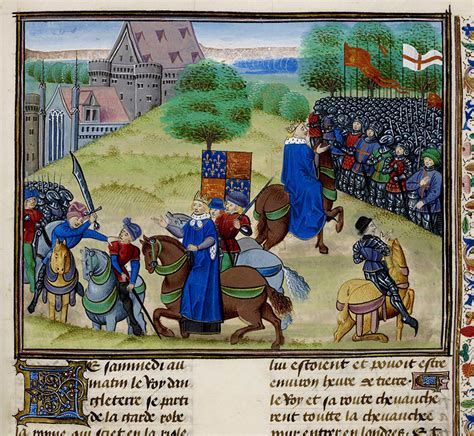 Le samnedi au
matin le Roy dan
gleterre se parti
de la garde robe
la Royne qui siet en la riole
lui estoient et pouoit estre
environ heure de tierce.
le Roy et sa route cheuauche
rent toutte la cheuauchee
pour entrer en londres